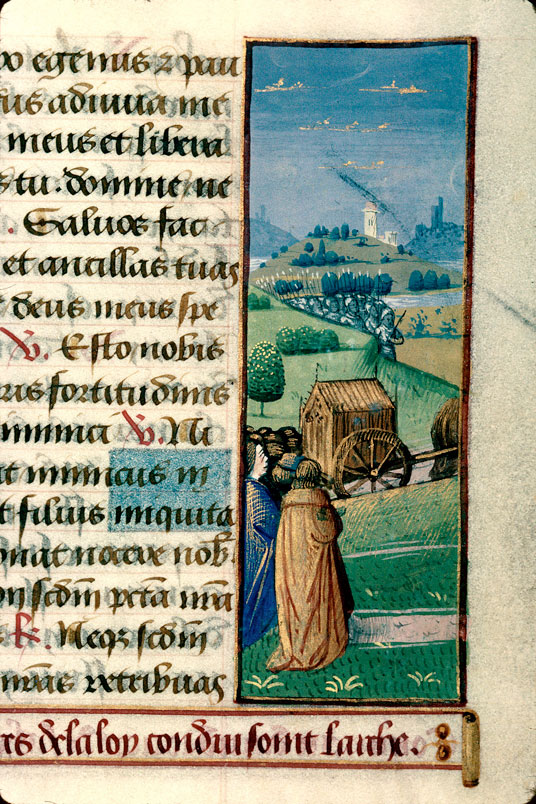 egenus z pau
us adiuua me
meus et libera
tu. domine ne
. Saluos fac
et ancillas tuas
deus meus spe
V. Esto nobis
fortitudinis
inimici V. Ni
at inimicus in
t filius iniquita
onat nocere nob.
scdm pcta nra
R. Neqz scdm
nras retribuas
rs dela loy conduisont larche.